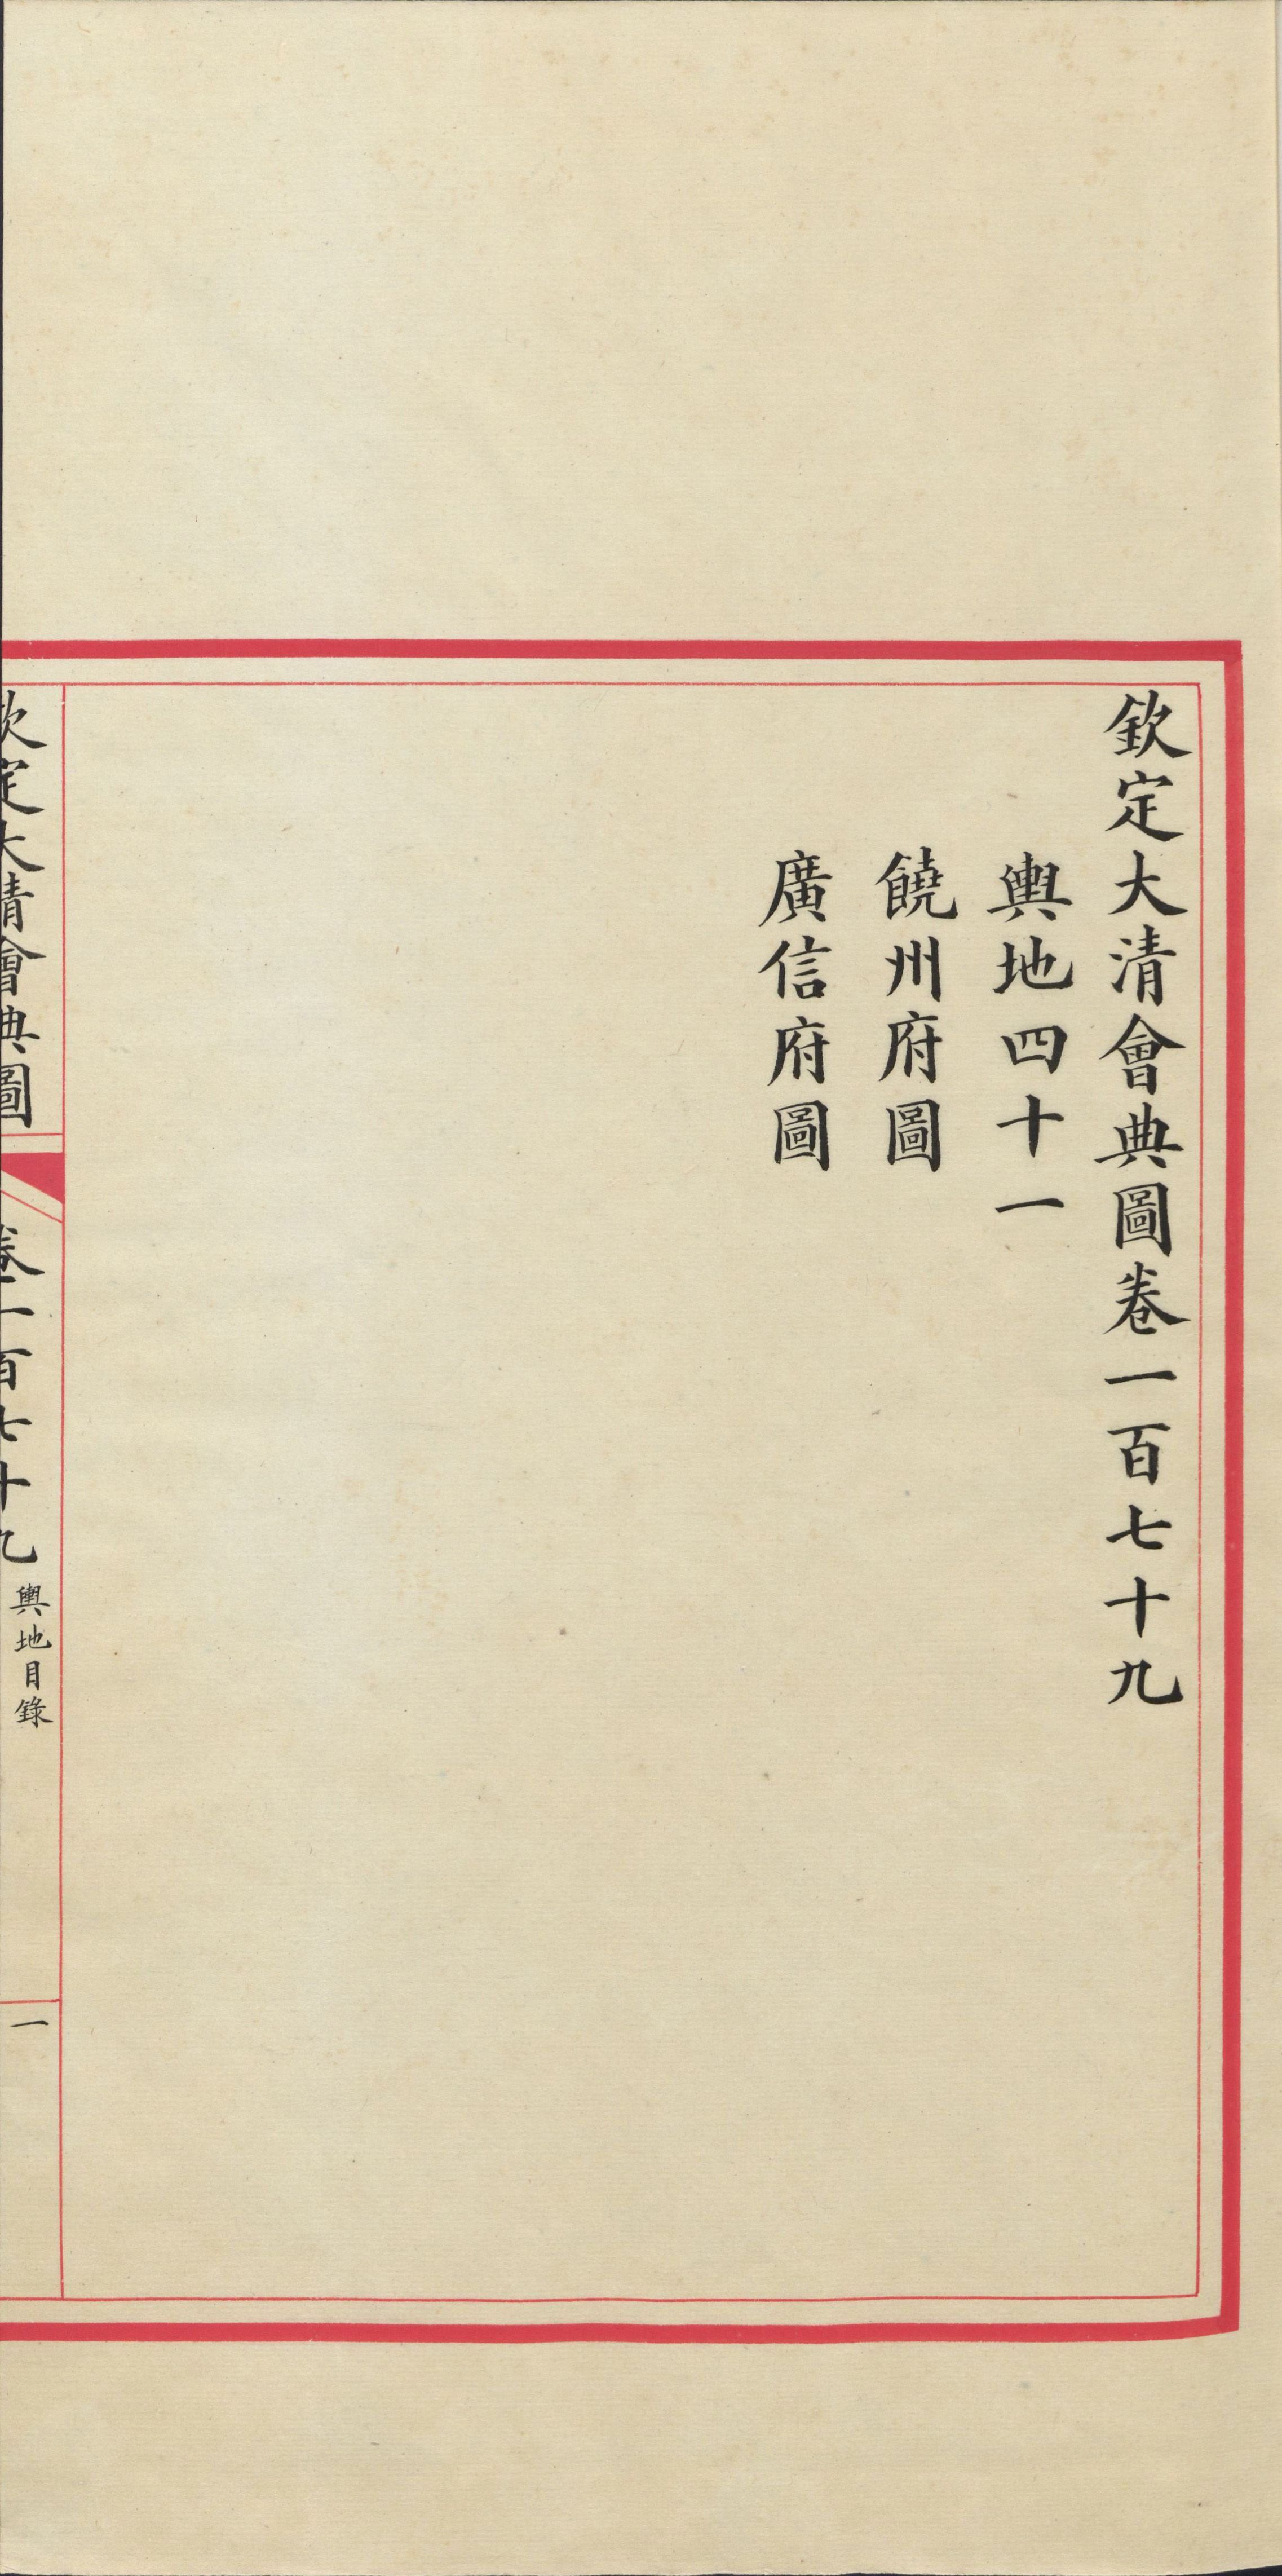 欽定大清會典圖卷一百七十九
輿地四十一
饒州府圖
廣信府圖
欽定大清會典圖
卷一百七十九
輿地目錄
一